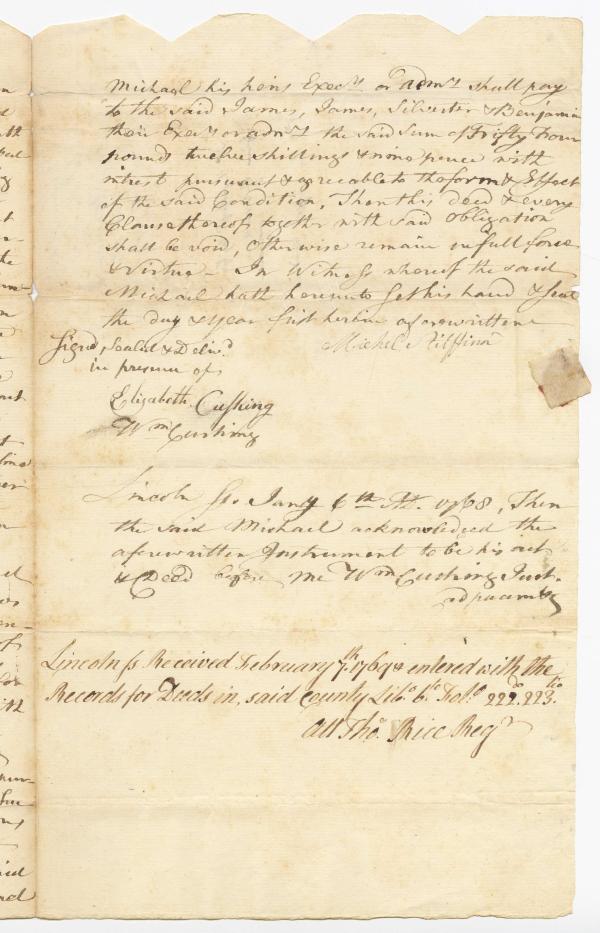 Michael his heirs Execrs or admrs shall pay
to the said James, James, Silvester & Benjamin
their Execrs or admrs the said Sum of Fifty Four
pounds twelve shillings & nine pence with
intrest pursuant & agreeable to the form & Effect
of the said Condition, Then this deed & every
Clause thereof together with said obligation
shall be void, Otherwise remain in full force
& Virtue - In Witness whereof the said
Michael hath hereunto set his hand & seal
the day & year first herein aforewritten
Signd, Sealed & Delivd
in presence of
Elizabeth Cushing
Wm Cushing
Lincoln Ss. Jany 6th 1768, Then
the said Michael acknowledged the
aforewritten Instrument to be his act
& Deed before me Wm Cushing Just.
ad pacem
Lincoln ss Received February 7th 1769 & entered with the
Records for Deeds in said County Libo 6to Folo 222 223
Att Tho. Rice Regr